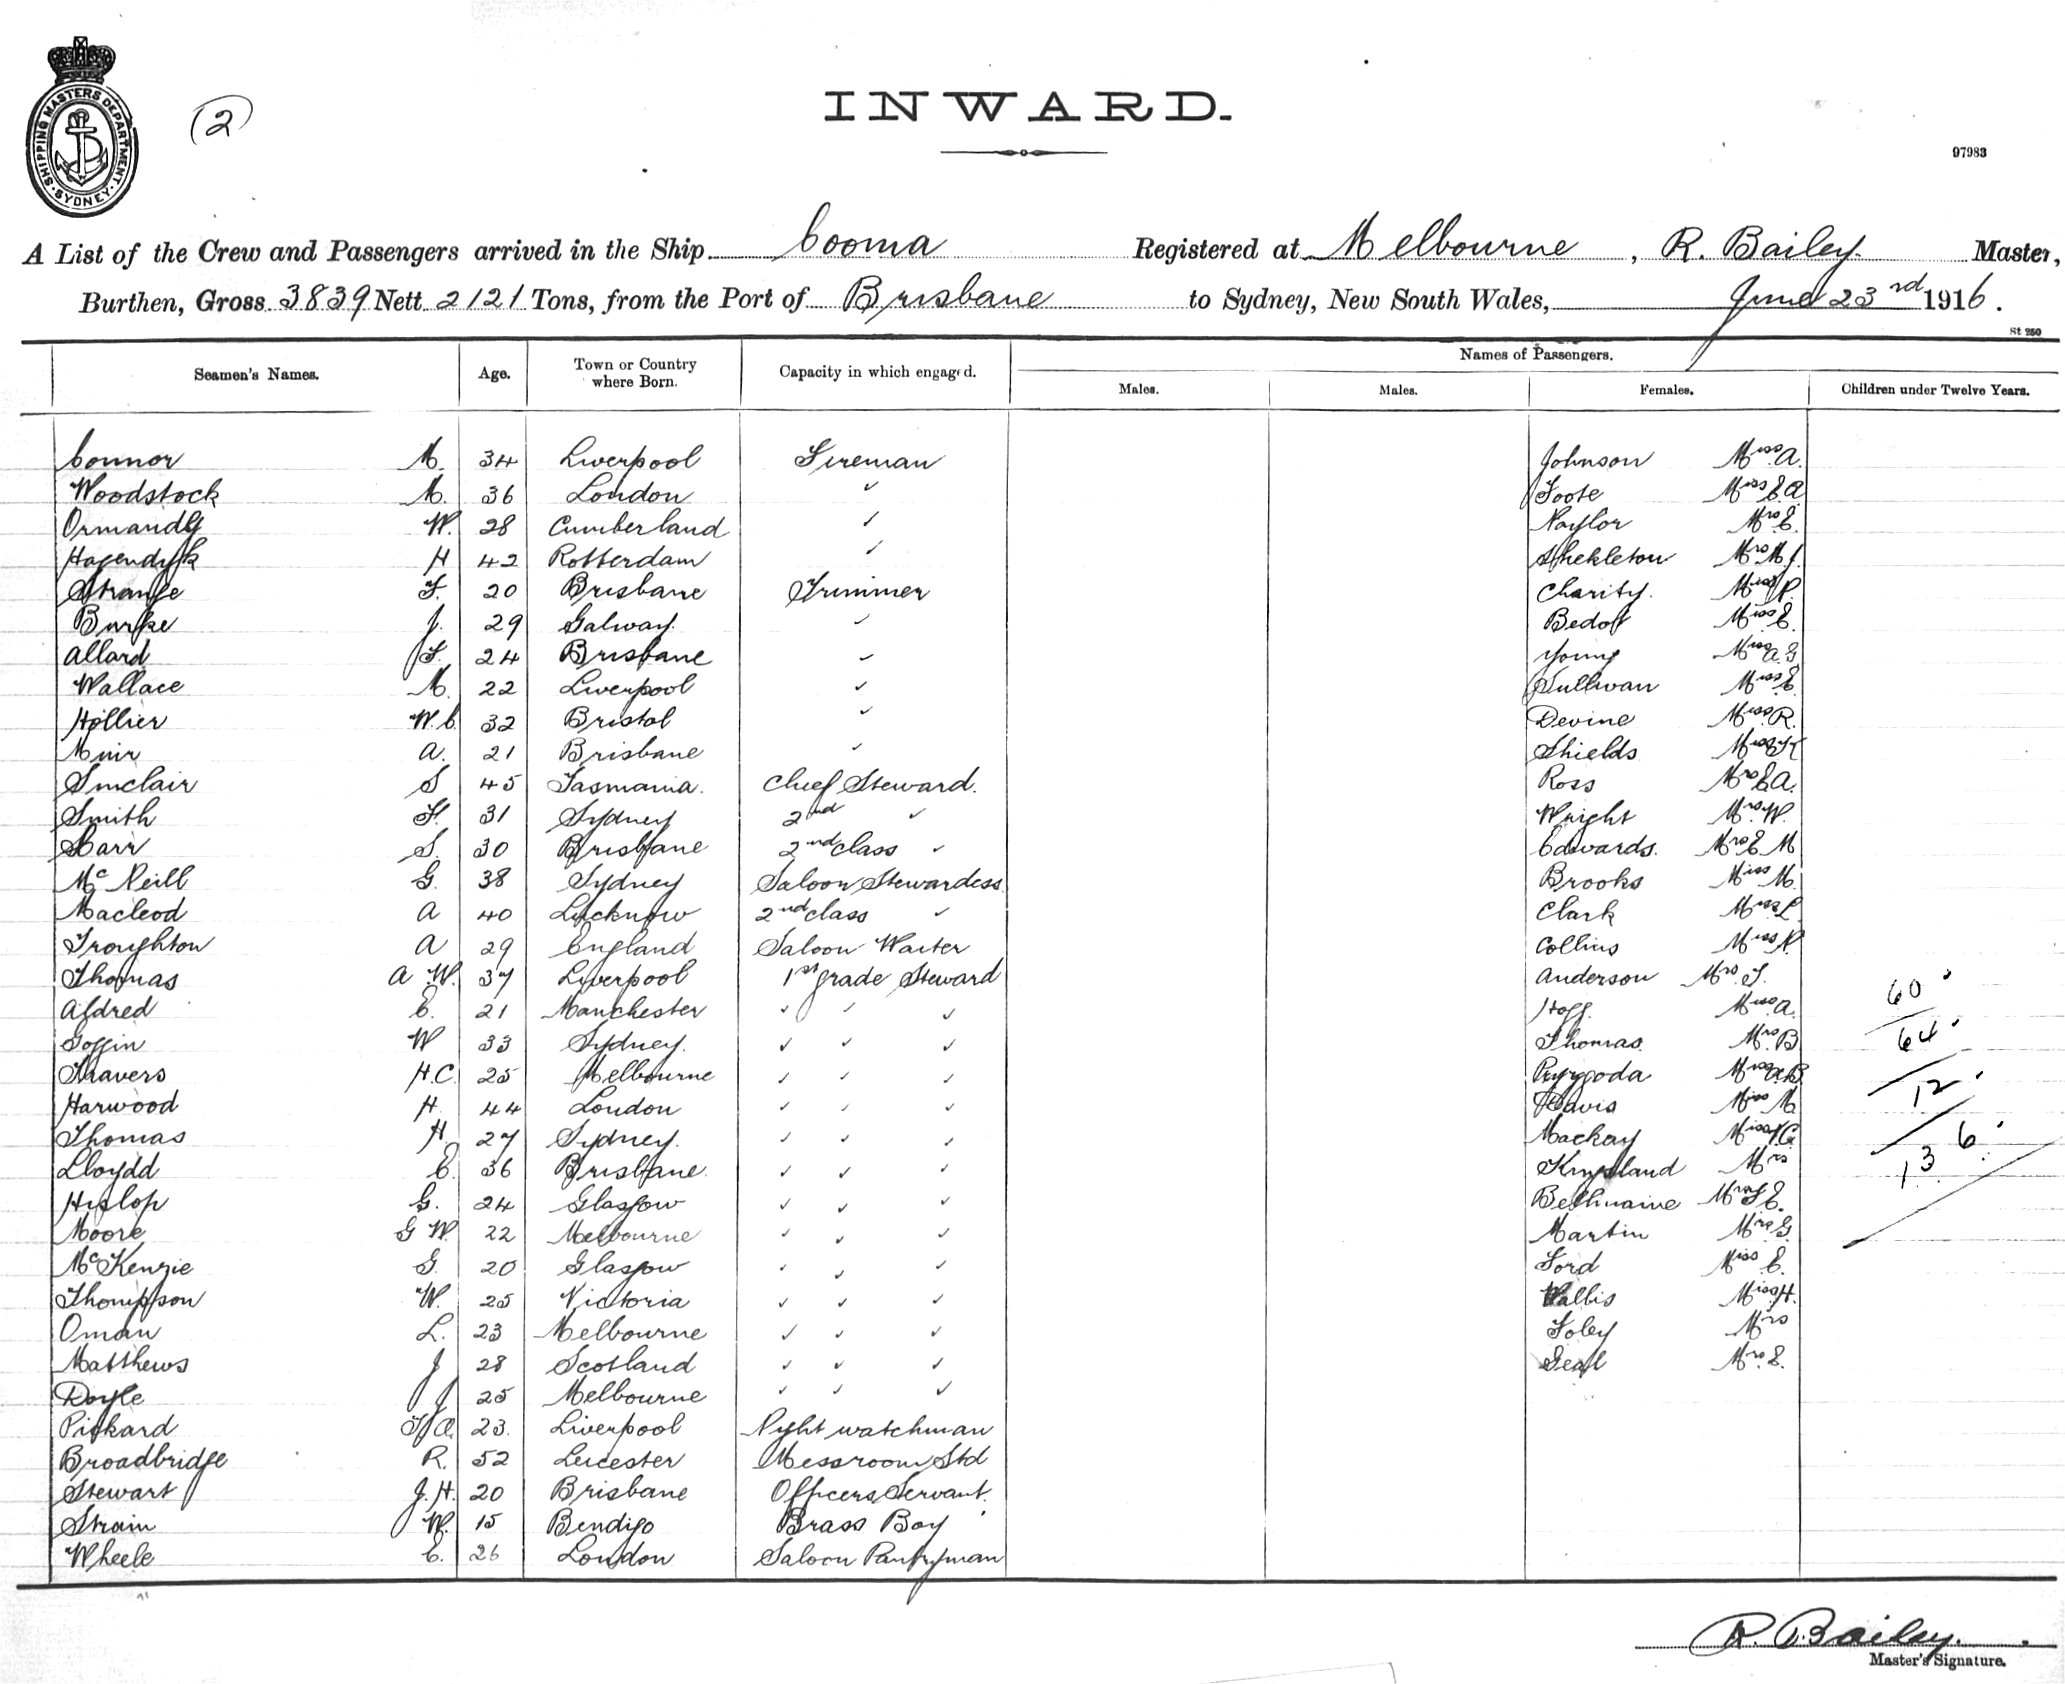 SHIPPING MASTERS DEPARTMENT. SYDNEY
(2)
INWARD.
97983
A List of the Crew and Passengers arrived in the Ship Cooma Registered at Melbourne, R. Bailey. Master,
Burthen, Gross 3839 Nett 2121 Tons, from the Port of Brisbane to Sydney, New South Wales, June 23rd 1916.
St 250
Seamen's Names. Age. Town or Country where Born. Capacity in which engaged. Names of Passengers.
Males. Males. Females. Children under Twelve Years.
Connor M. 34 Liverpool Fireman Johnson Miss A.
Woodstock M. 36 London ✓ Foote Miss E A
Ormandy W. 28 Cumberland ✓ Naylor Mrs E.
Hagendyk H 42 Rotterdam ✓ Shekleton Mrs M J.
Strange F. 20 Brisbane Trimmer Charity. Miss
Burke J. 29 Galway. ✓ Miss E.
Allard F. 24 Brisbane ✓ Young Miss A G
Wallace M. 22 Liverpool ✓ Sullivan Miss E.
Hollier W.C. 32 Bristol ✓ Devine Miss R.
Muir A. 21 Brisbane ✓ Shields
Sinclair S 45 Tasmania. Chief Steward. Ross Mrs E A.
Smith H. 31 Sydney 2nd ✓ Wright Mrs W.
Carr S. 30 Brisbane 2nd class ✓ Edwards. Mrs E M
McNeill G. 38 Sydney Saloon Stewardess Brooks Miss M.
Macleod A 40 Lucknow 2nd class ✓ Clark Miss L
Troughton A 29 England Saloon Waiter Collins Miss
Thomas A W. 37 Liverpool 1st grade Steward Anderson Mrs
Aldred E. 21 Manchester ✓ ✓ ✓ Miss A. 60
Goffin W 33 Sydney. ✓ ✓ ✓ Thomas. Mrs B 64
Travers H.C. 25 Melbourne ✓ ✓ ✓
Harwood H. 44 London ✓ ✓ ✓ Davis Miss M 12
Thomas H. 27 Sydney. ✓ ✓ ✓ Mackay 6
Lloydd E. 36 Brisbane. ✓ ✓ ✓ Kingsland Mrs 13
Hislop G. 24 Glasgow ✓ ✓ ✓
Moore G W. 22 Melbourne ✓ ✓ ✓ Martin Mrs G.
McKenzie G. 20 Glasgow ✓ ✓ ✓ Ford Miss E.
Thompson W. 25 Victoria ✓ ✓ ✓ Wallis Miss H.
Oman L. 23 Melbourne ✓ ✓ ✓ Foley Mrs
Matthews J 28 Scotland ✓ ✓ ✓ Geal Mrs E.
Doyle J 25 Melbourne ✓ ✓ ✓
Pickard 23. Liverpool Night watchman
Broadbridge R. 52 Leicester Messroom Std
Stewart J. H. 20 Brisbane Officers Servant.
Strain W. 15 Bendigo Brass Boy
Wheele E. 26 London Saloon Pantryman
R. Bailey.
Master's Signature.